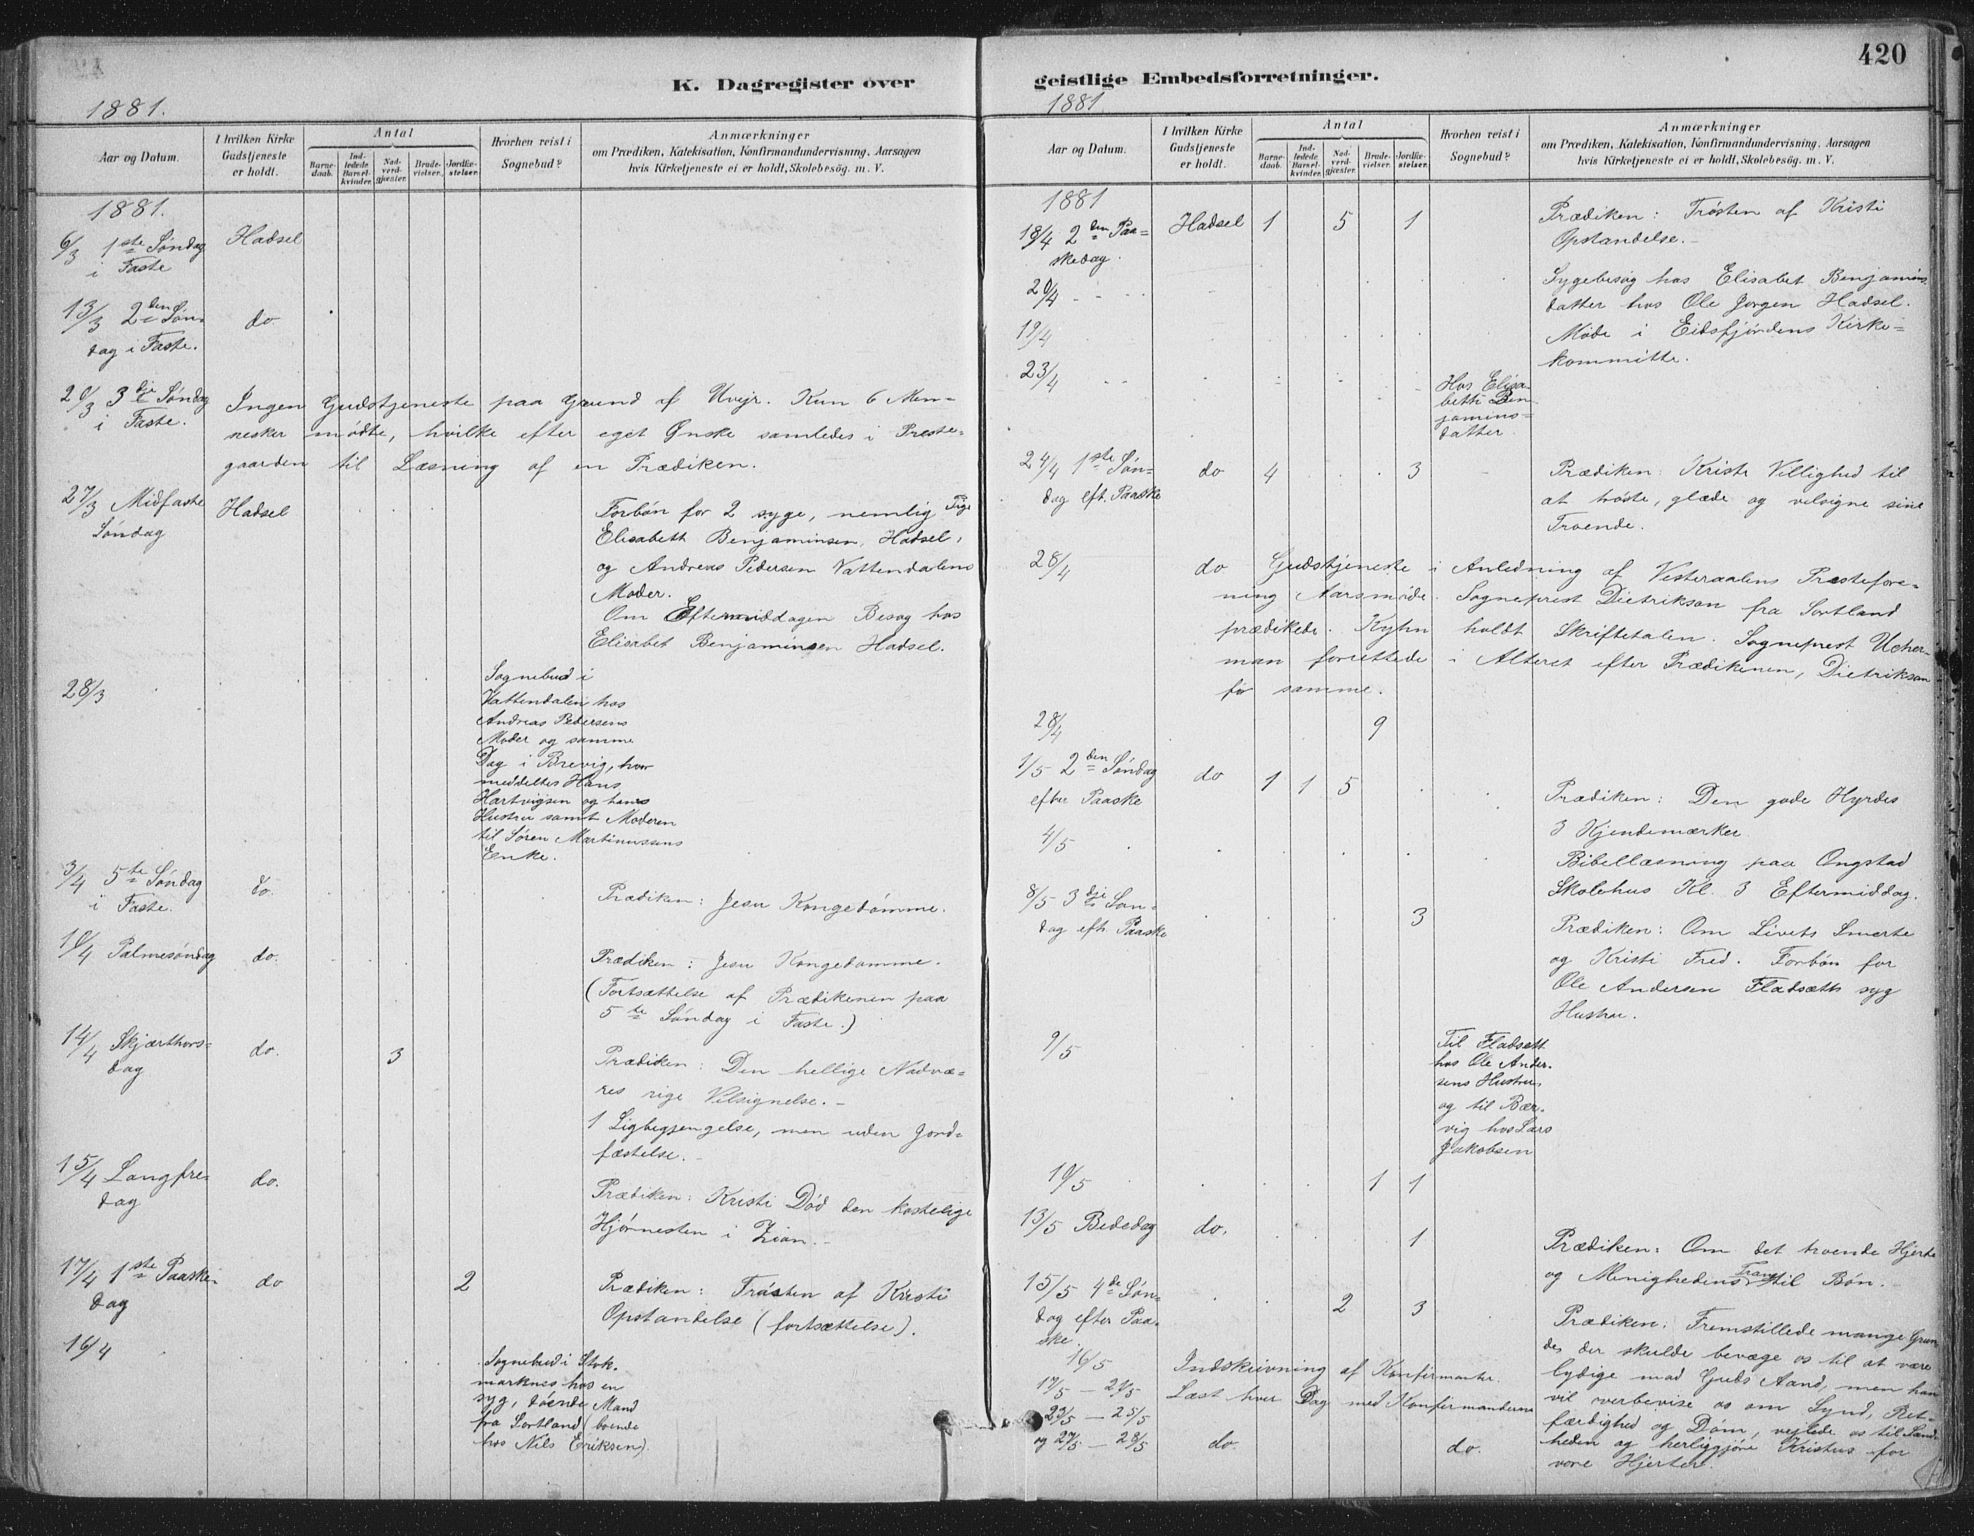 420
K. Dagregister over
1881.
Aar og Datum.
I hvilken Kirke Gudstjeneste er holdt.
Antal
Barnedaab.
Indledede Barselkvinder.
Nadverdgjæster.
Brudevielser.
Jordfæstelser.
Hvorhen reist i Sognebud?
Anmærkninger
om Prædiken, Katekisation, Konfirmandundervisning, Aarsagen
hvis Kirketjeneste ei er holdt, Skolebesög. m. V.
1881.
6/3 1ste Søndag Hadsel
i Faste
13/3 2den Søn- do
dag i Faste.
20/3 3die Søndag Ingen Gudstjeneste paa Grund af Uveir. Kun 6 Men-
i Faste. nesker mødte, hvilke efter eget Ønske samledes i Preste-
gaarden til Læsning af en Prædiken.
27/3 Midfaste Hadsel Forbøn for 2 syge, nemlig Pige
Søndag Elisabeth Benjaminsen, Hadsel,
og Andreas Pedersen Vattendalens
Moder.
Om Eftermiddagen Besøg hos
Elisabet Benjaminsen Hadsel.
28/3 Sognebud i
Vattendalen hos
Andreas Pedersens
Moder og samme
Dag i Brevig, hvor
meddeltes Hans
Hartvigsen og hans
Hustru samt Moderen
til Søren Martinussens
Enke.
3/4 5te Søndag do. Prædiken: Jesu Kongedømme.
i Faste.
10/4 Palmesøndag do. Prædiken: Jesu Kongedømme.
(Fortsættelse af Prædikenen paa
5te Søndag i Faste.)
14/4 Skjærthors- do. 3 Prædiken: Den hellige Nadvæ-
dag res rige Velsignelse. -
1 Ligbegjengelse, men uden Jord-
fæstelse. -
15/4 Langfre- do. Prædiken: Kristi Død den kostelige
dag Hjørnesten i Zion. -
17/4 1ste Paaske- do 2 Prædiken: Trøsten af Kristi
dag Opstandelse (fortsættelse).
16/4 Sognebud i Stok-
marknes hos en
syg, døende Mand
fra Sortland (boende
hos Nils Eriksen).
geistlige Embedsforretninger.
1881
Aar og Datum.
I hvilken Kirke Gudstjeneste er holdt.
Antal
Barnedaab.
Indledede Barselkvinder.
Nadverdgjæster.
Brudevielser.
Jordfæstelser.
Hvorhen reist i Sognebud?
Anmærkninger
om Prædiken, Katekisation, Konfirmandundervisning, Aarsagen
hvis Kirketjeneste ei er holdt, Skolebesög. m. V.
1881
18/4 2den Paa- Hadsel 1 5 1 Prædiken: Trøsten af Kristi
skedag. Opstandelse. -
20/4 Sygebesøg hos Elisabet Benjamins-
datter hos Ole Jørgen Hadsel.
19/4 Møde i Eidsfjordens Kirke-
kommitte.
23/4 Hos Elisa-
beth Ben-
jamins-
datter
24/4 1ste Søn- do 4 3 Prædiken: Kristi Villighed til
dag eft. Paaske at trøste, glæde og velsigne sine
Troende.
28/4 do Gudstjeneste i Anledning af Vesteraalens Prestefore-
ning Aarsmøde. Sogneprest Dietrikson fra Sortland
prædikede. Kyhn holdt Skriftetalen. Sogneprest Ucher-
man forrettede i Alteret efter Prædikenen, Dietrikson
før samme.
28/4 9
1/5 2den Søndag do 1 1 5 Prædiken: Den gode Hyrdes
efter Paaske 3 Kjendemærker
4/5 Bibellæsning paa Ongstad
Skolehus Kl. 3 Eftermiddag.
8/5 3die Søn- 3 Prædiken: Om Livets Smerte
dag eft. Paaske og Kristi Fred. Forbøn for
Ole Andersen Fladsæths syg
Hustru.
9/5 Til Fladsett
hos Ole Ander-
sens Hustru,
og til Bær-
vig hos Lars
Jakobsen
10/5 1 1
13/5 Bededag do. 1 Prædiken: Om det troende Hjerte
og Menighedens Trang til Bøn. -
15/5 4de Søn- 2 3 Prædiken: Fremstillede mange Grun-
dag efter Paa- de, der skulde bevæge os til at være
ske lydige mod Guds Aand, men han
16/5 Indskrivning af Konfirmanter. vil overbevise os om Synd, Ret-
17/5 - 21/5 Læst hver Dag med Konfirmanderne færdighed og Dom, veilede os til Sand-
23/5 - 25/5 heden og herliggjøre Kristus for
og 27/5 - 28/5 do. do. vore Hjerter.